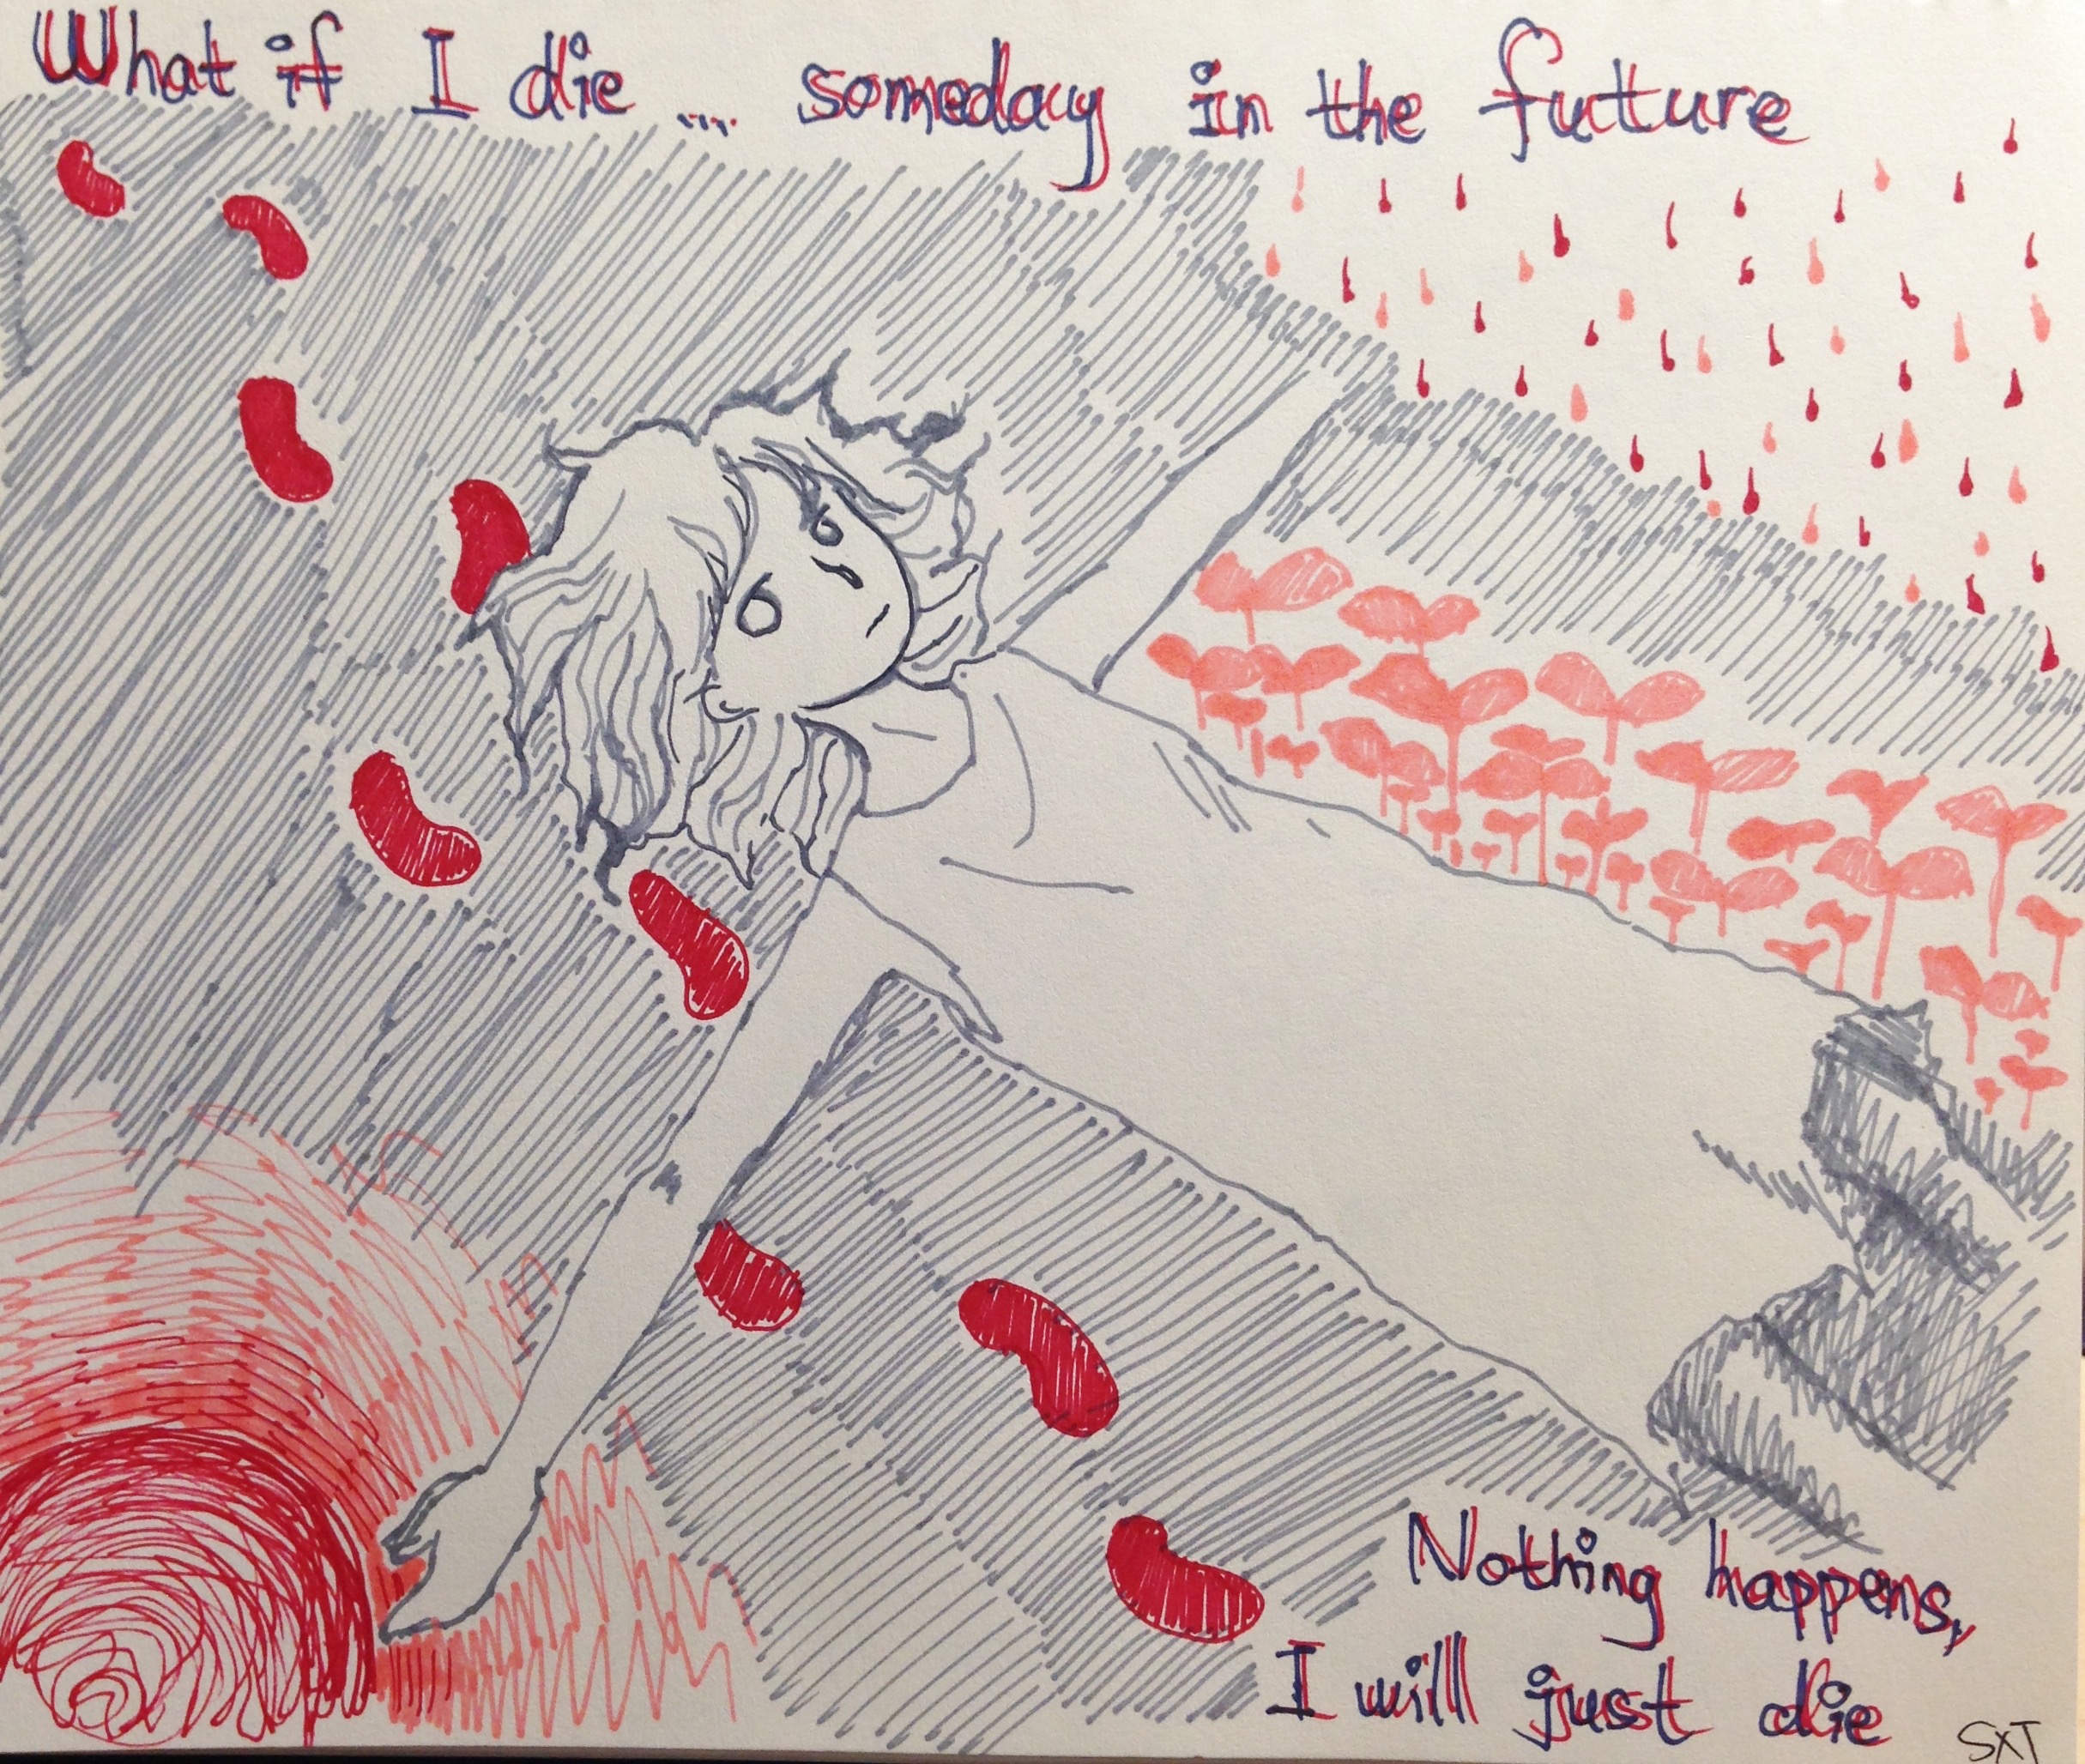 What if I die ... someday in the futture
Nothing happens,
I will just die
SXT